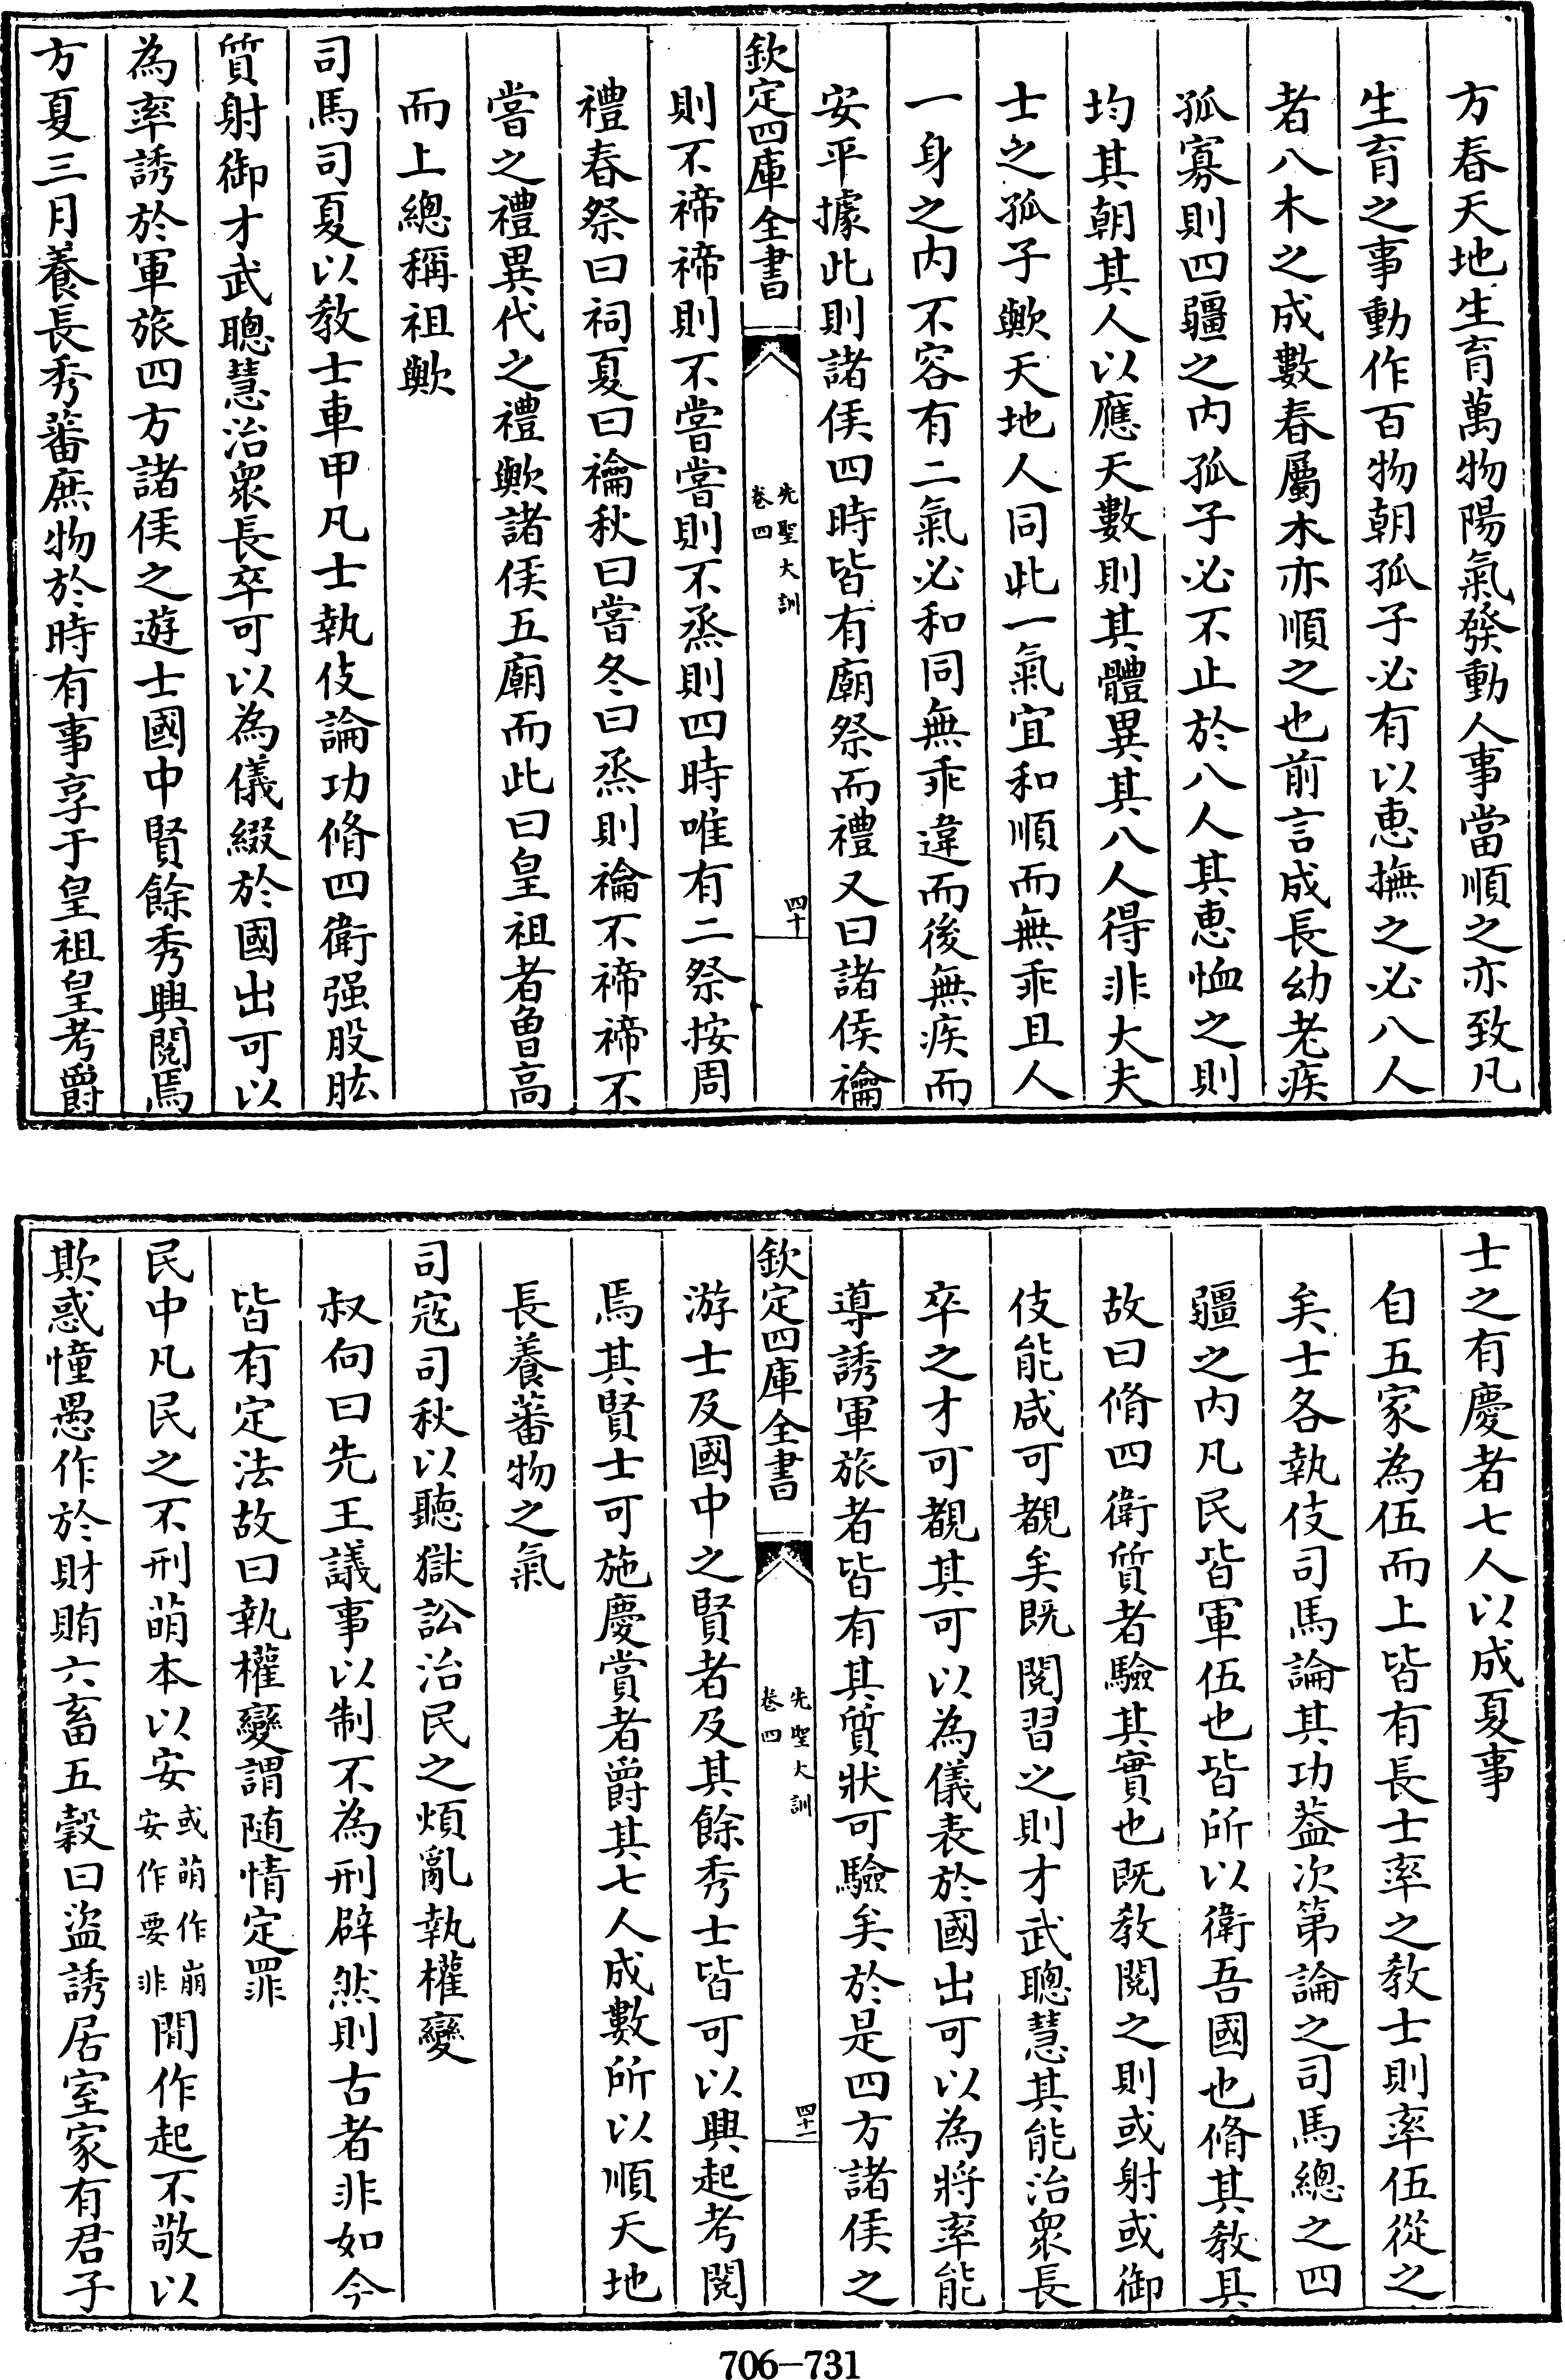 方春天地生育萬物陽氣發動人事當順之亦致凡
生育之事動作百物朝孤子必有以恵撫之必八人
者八木之成數春屬木亦順之也前言成長幼老疾
孤寡則四疆之内孤子必不止於八人其恵恤之則
均其朝其人以應天數則其體異其八人得非大夫
士之孤子歟天地人同此一氣宜和順而無乖且人
一身之内不容有二氣必和同無乖違而後無疾而
安平據此則諸侯四時皆有廟祭而禮又曰諸侯禴
欽定四庫全書
先聖大訓
卷四
四十
則不禘禘則不嘗嘗則不烝則四時唯有二祭按周
禮春祭曰祠夏曰禴秋曰嘗冬曰烝則禴不禘禘不
嘗之禮異代之禮歟諸侯五廟而此曰皇祖者魯高
而上總稱祖歟
司馬司夏以教士車甲凡士執伎論功脩四衛强股肱
質射御才武聰慧治衆長卒可以為儀綴於國出可以
為率誘於軍旅四方諸侯之遊士國中賢餘秀興閱焉
方夏三月養長秀蕃庶物於時有事享于皇祖皇考爵
士之有慶者七人以成夏事
自五家為伍而上皆有長士率之教士則率伍從之
矣士各執伎司馬論其功葢次第論之司馬總之四
疆之内凡民皆軍伍也皆所以衛吾國也脩其教具
故曰脩四衛質者驗其實也既教閱之則或射或御
伎能咸可覩矣既閱習之則才武聰慧其能治衆長
卒之才可覩其可以為儀表於國出可以為將率能
導誘軍旅者皆有其質狀可驗矣於是四方諸侯之
欽定四庫全書
先聖大訓
卷四
四十一
游士及國中之賢者及其餘秀士皆可以興起考閱
焉其賢士可施慶賞者爵其七人成數所以順天地
長養蕃物之氣
司寇司秋以聽獄訟治民之煩亂執權變
叔向曰先王議事以制不為刑辟然則古者非如今
皆有定法故曰執權變謂随情定罪
民中凡民之不刑萌本以安或萌作崩安作要非閒作起不敬以
欺惑憧愚作於財賄六畜五榖曰盜誘居室家有君子
706-731